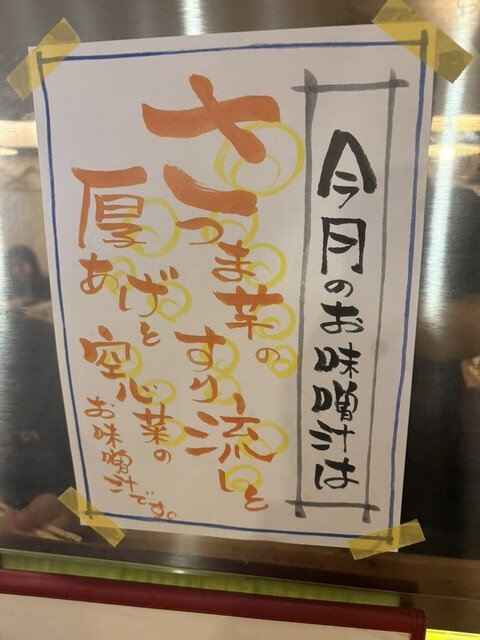 今月のお味噌汁は
さつま芋の
すり流しと
厚あげと
空心菜の
お味噌汁です。